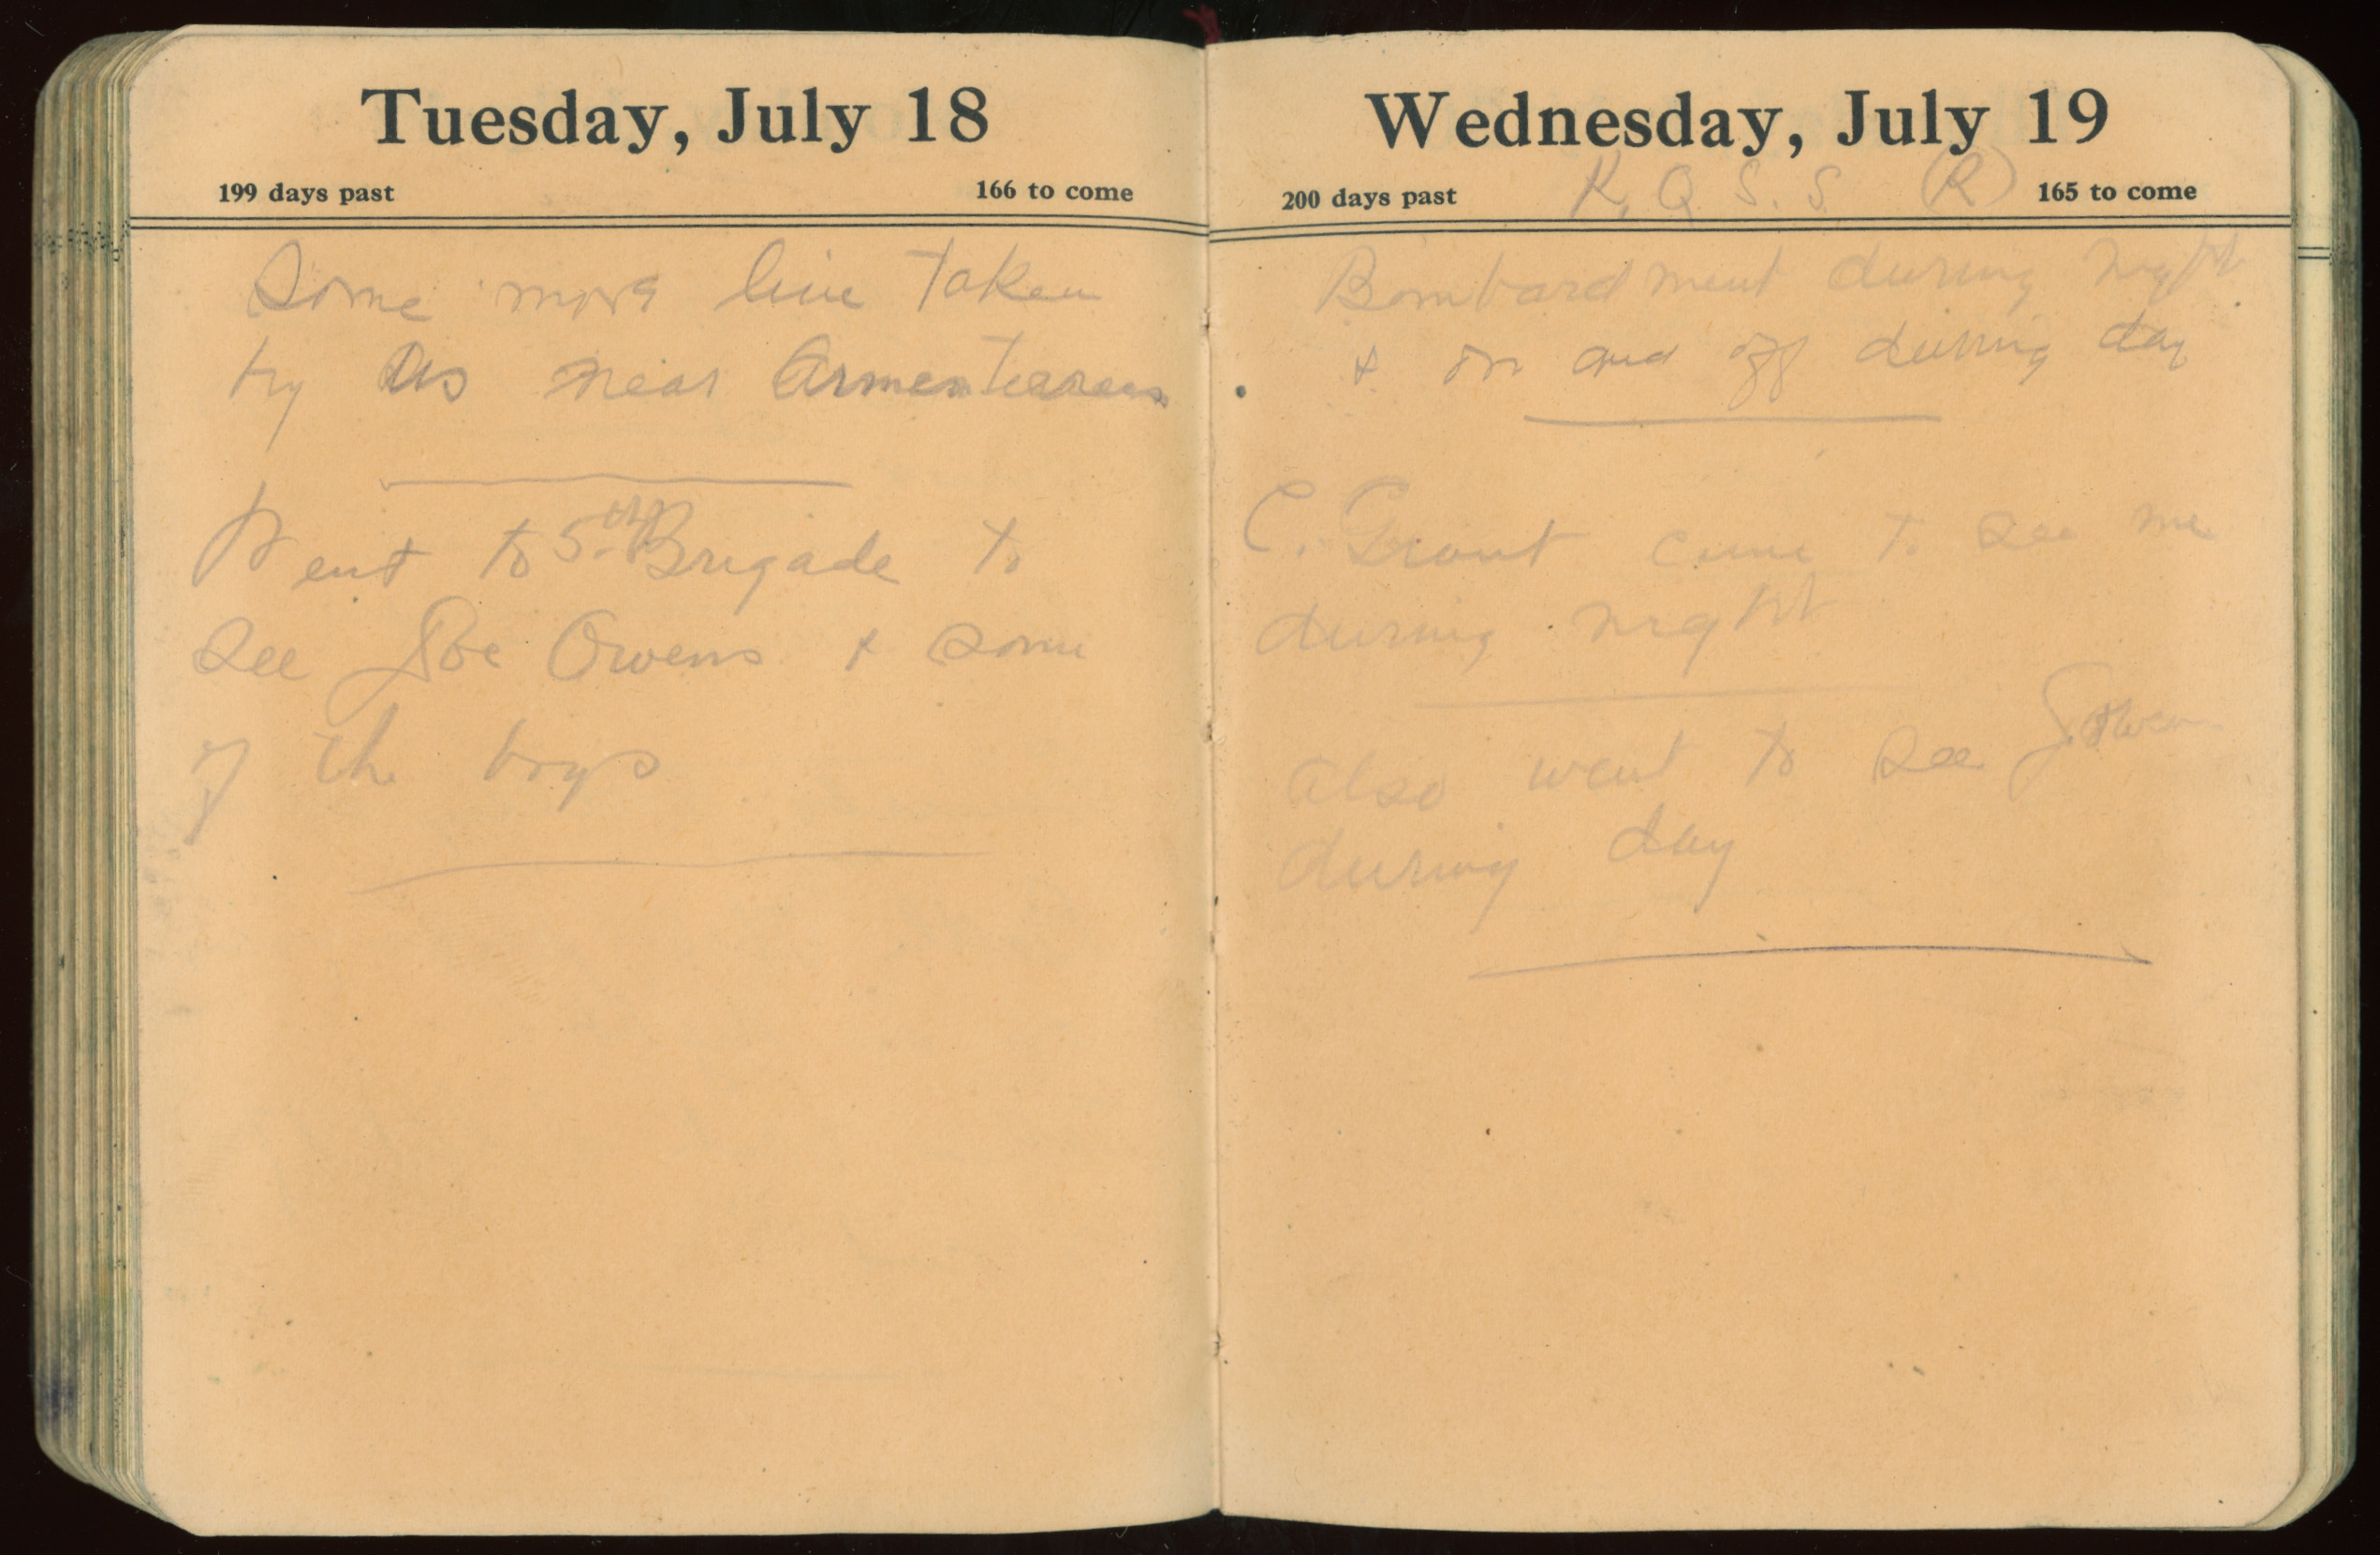 Tuesday, July 18
199 days past 166 to come
Some more line taken
by us near Armenteares
Went to 5th Brigade to
see Joe Owens & some
of the boys
Wednesday, July 19
200 days past K. Q. S. S. (R) 165 to come
Bombardment during night
& on and off during day
C. Grout came to see me
during night
also went to see J. Owen
during day